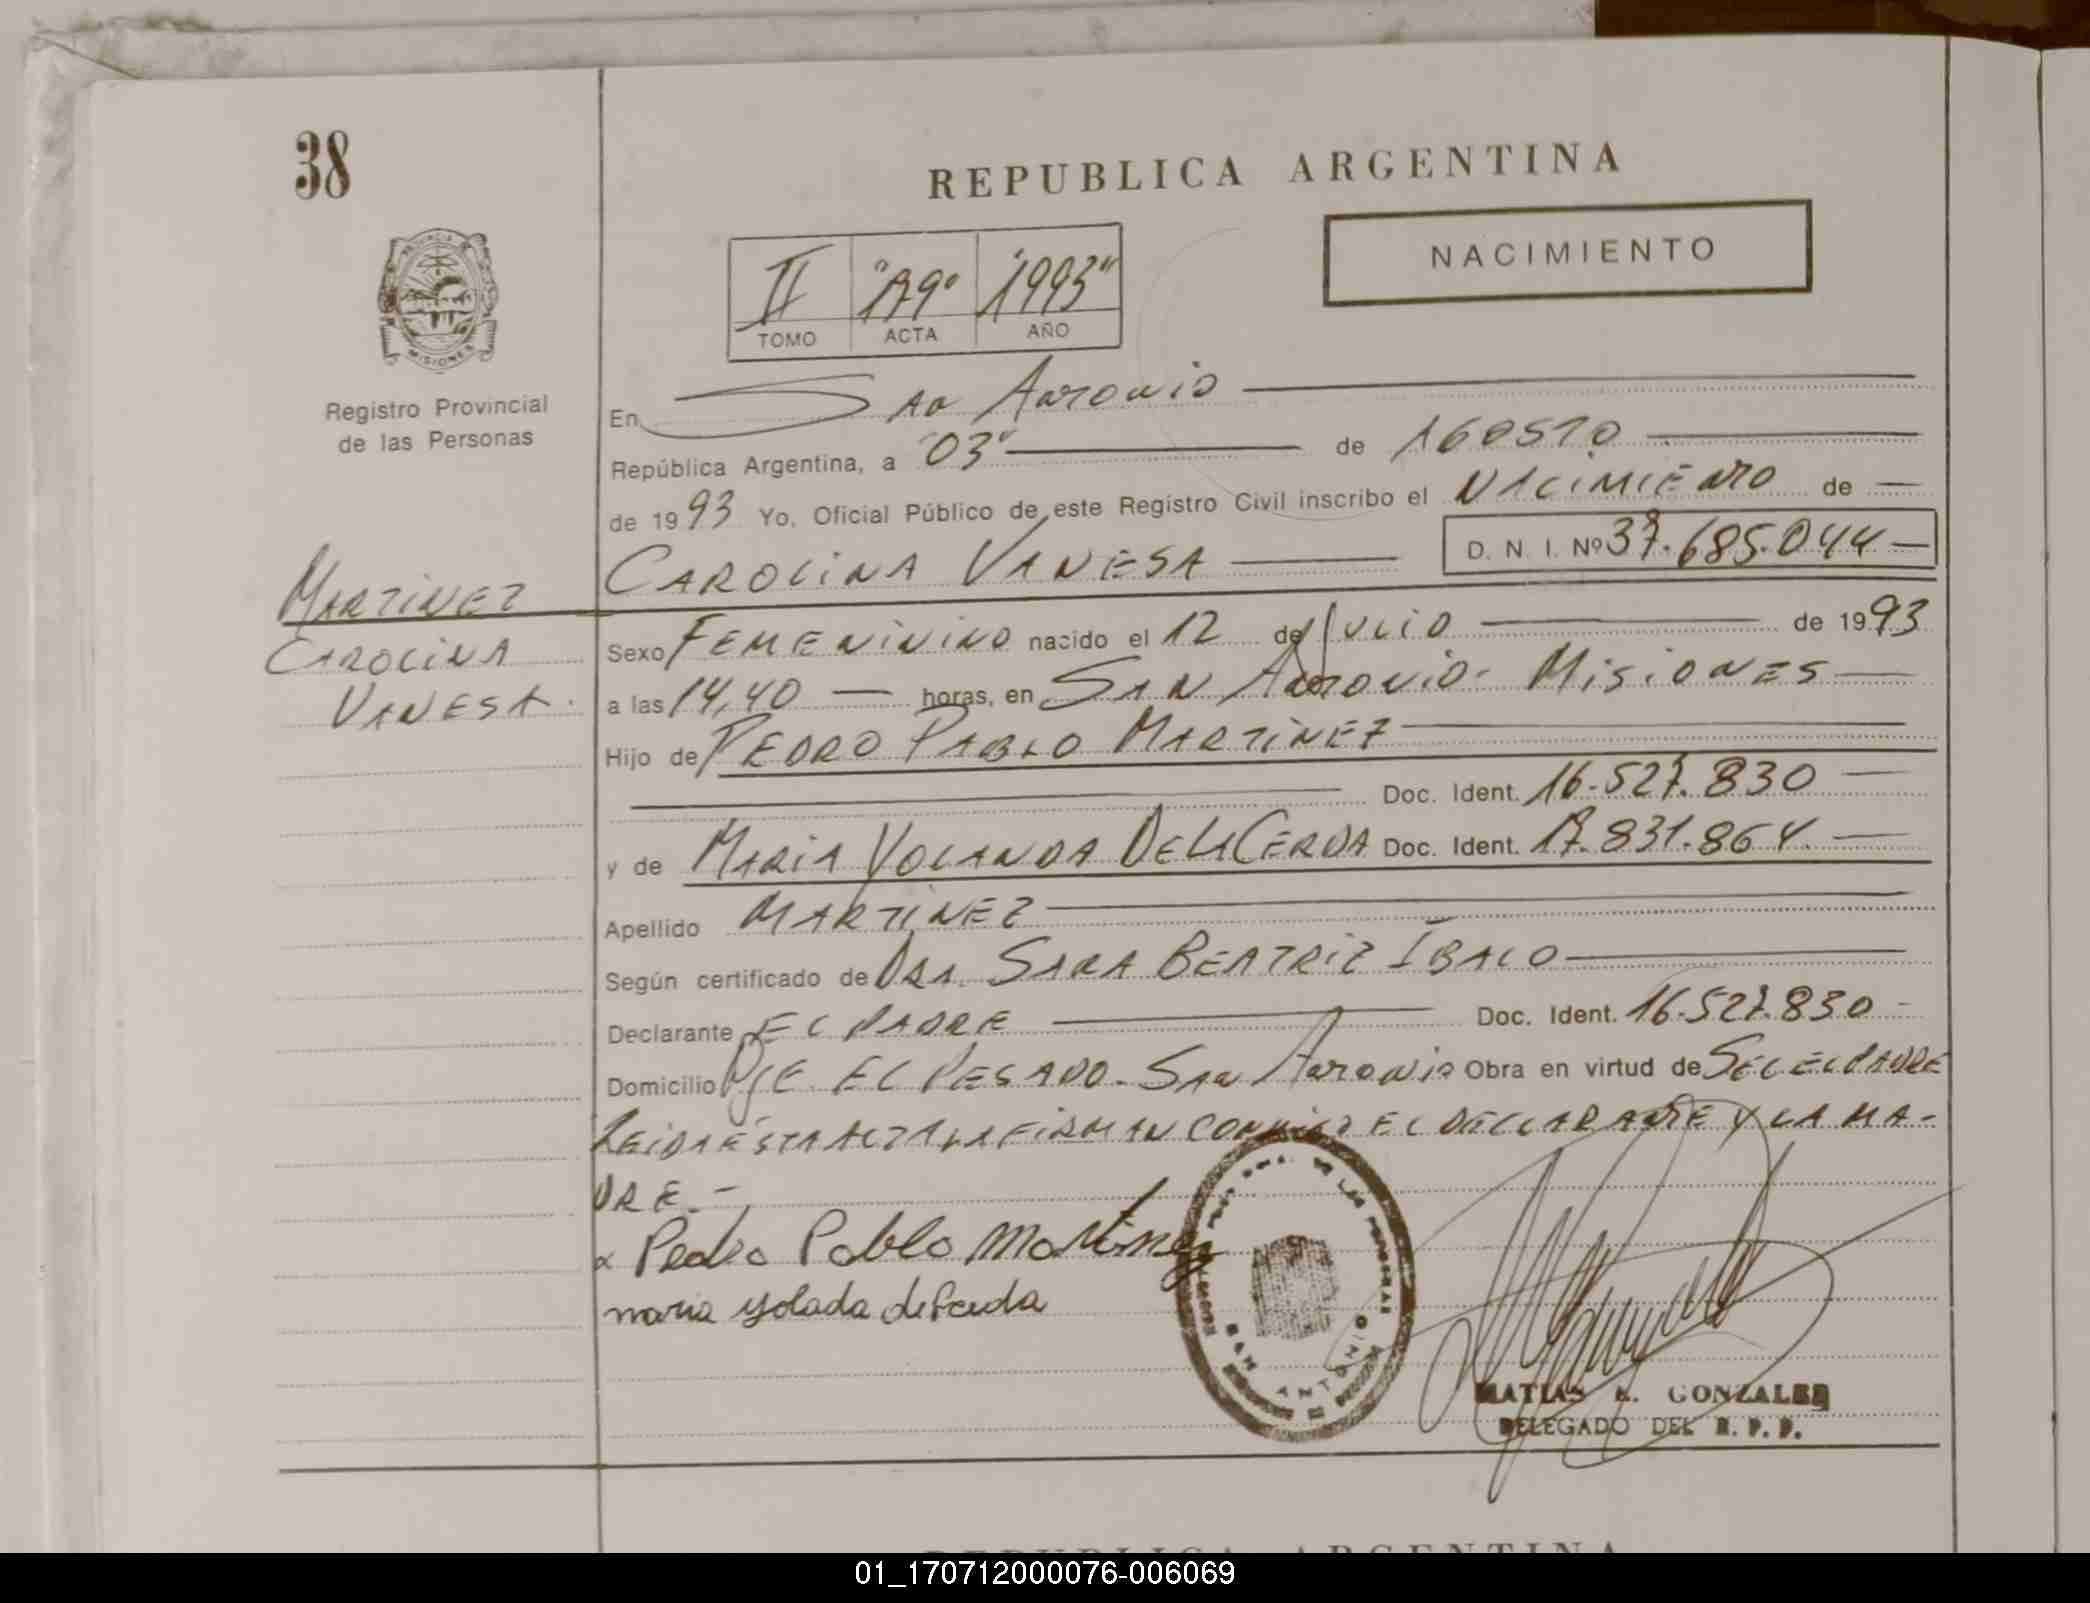 38
REPUBLICA ARGENTINA
NACIMIENTO
II "179" "1993"
TOMO ACTA AÑO
PROVINCIA DE MISIONES
Registro Provincial
de las Personas
En San Antonio
República Argentina, a "03" de AGOSTO
de 1993 Yo, Oficial Público de este Registro Civil inscribo el NACIMIENTO de
CAROLINA VANESA D. N. I. Nº 37.685.044
MARTINEZ
CAROLINA
VANESA.
Sexo FEMENINO nacido el 12 de JULIO de 1993
a las 14,40 horas, en SAN ANTONIO - MISIONES
Hijo de PEDRO PABLO MARTINEZ
Doc. Ident. 16.527.830
y de MARIA YOLANDA DELACERDA Doc. Ident. 17.831.864.
Apellido MARTINEZ
Según certificado de DRA. SARA BEATRIZ IBALO
Declarante EL PADRE Doc. Ident. 16.527.830
Domicilio PJE. EL PESADO - SAN ANTONIO Obra en virtud de SEC EL PADRE
LEIDA ESTA ACTA LA FIRMAN CONMIGO EL DECLARANTE Y LA MA-
DRE.-
x Pedro Pablo Martinez
maria yolada
SAN ANTONIO
MATIAS R. GONZALEZ
DELEGADO DEL R. P. P.
REPUBLICA ARGENTINA
01_170712000076-006069